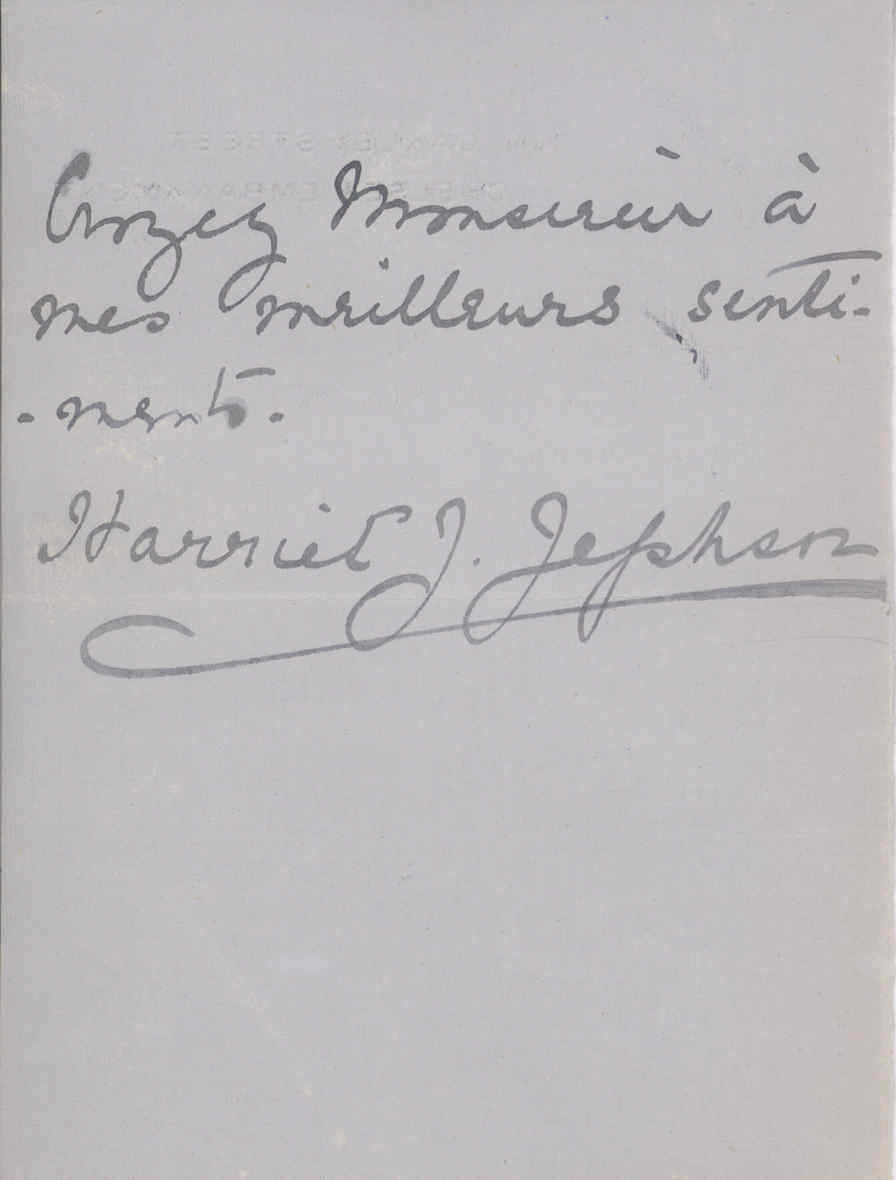 Croyez Monsieur à
mes meilleurs senti-
-ments.
Harriet J. Jephson